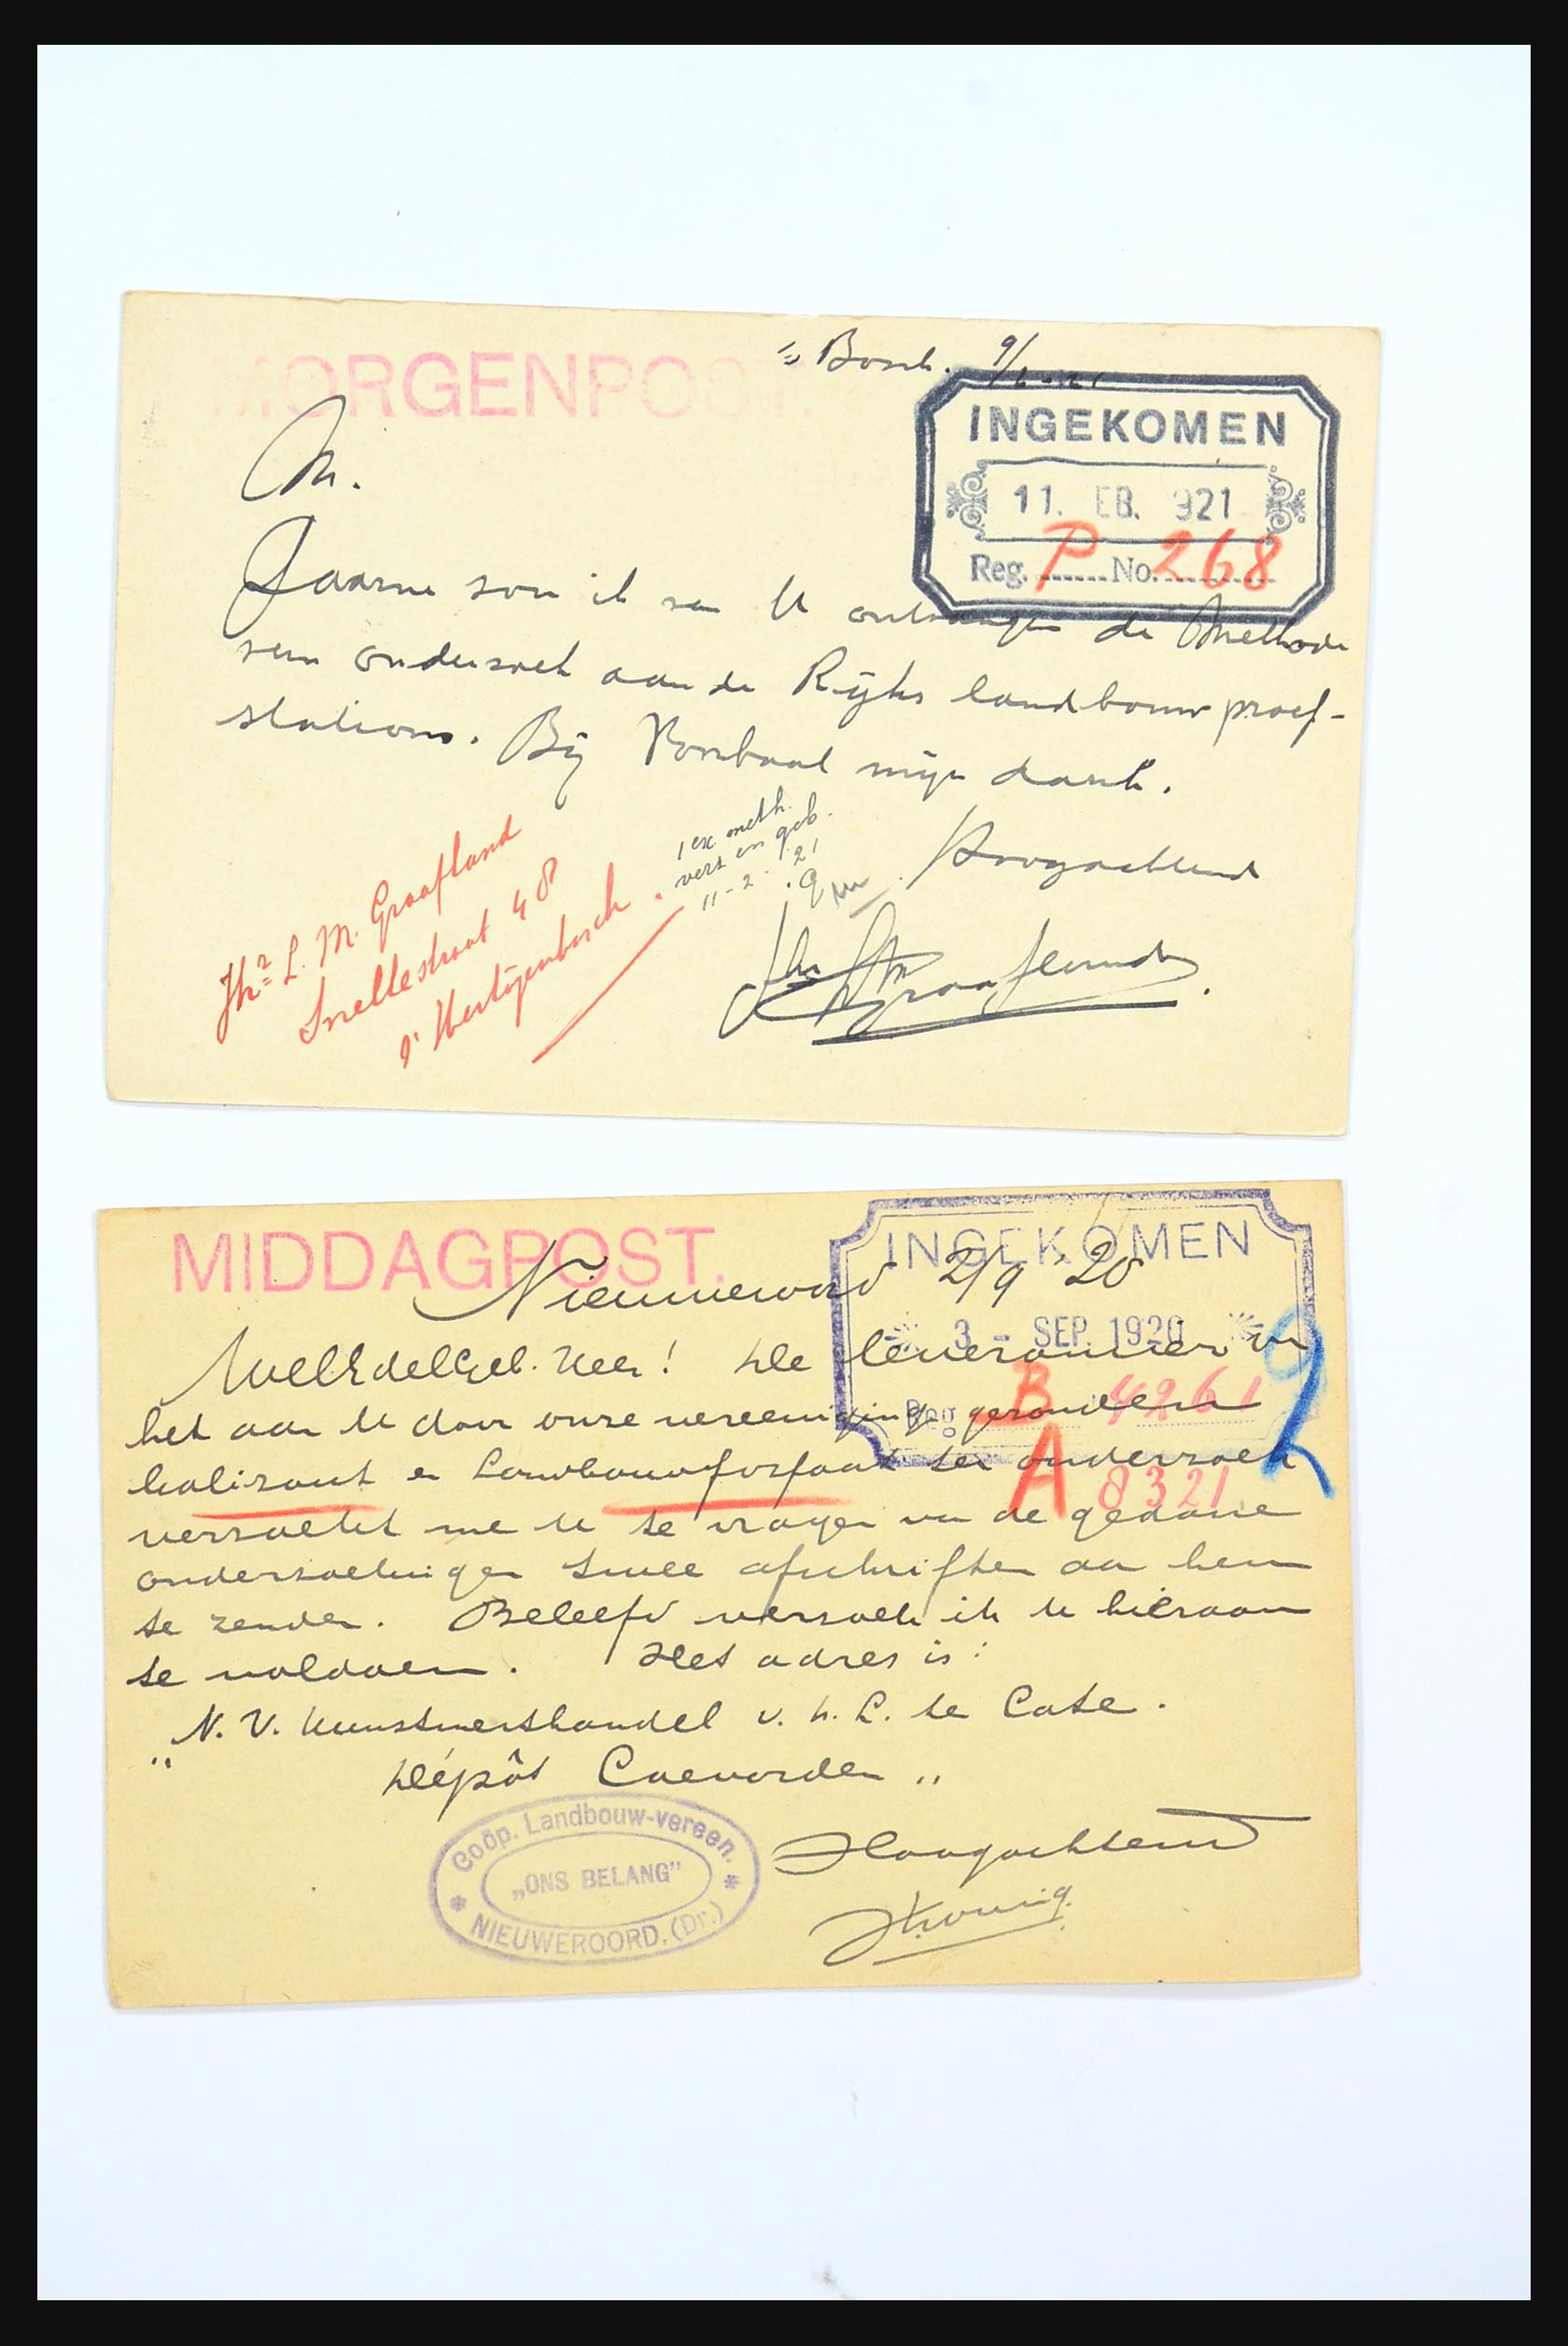 MORGENPOST.
's Bosch. 9/2-21
INGEKOMEN
11. EB. 921
Reg. P No. 268
M.
Gaarne zou ik van U ontvangen de Methode
van onderzoek aan de Rijks landbouwproef-
stations. Bij Voorbaat mijn dank.
1 ex meth.
verz en geb.
11-2-21
Hoogachtend
Jhr L. M. Graafland
Snellestraat 48
s' Hertogenbosch.
Jhr LM Graafland.
MIDDAGPOST.
INGEKOMEN
Nieuweroord 2/9 '20
3 - SEP. 1920
WelEdelGeb. Heer! De leverancier van
Reg B 4261
het aan U door onze vereeniging gezonden
kalizout en Landbouwfosfaat ter onderzoek
A 8321
verzocht me U te vragen van de gedane
onderzoekingen twee afschriften aan hem
te zenden. Beleefd verzoek ik U hieraan
te voldoen. Het adres is:
"N. V. Kunstmesthandel v. h. L. ten Cate.
Dépôt Coevorden"
Coöp. Landbouw-vereen.
„ONS BELANG"
NIEUWEROORD. (Dr.)
Hoogachtend